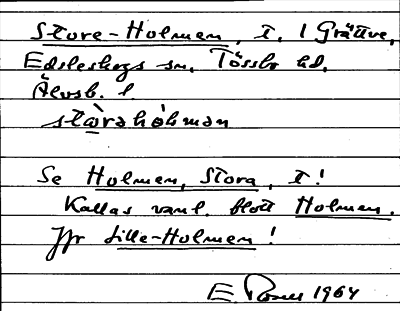 Store-Holmen, t. I Grättve,
Edsleskogs sn. Tössbo hd.
Älvsb. l.
stòrahòlman
Se Holmen, Stora, t!
Kallas vanl. blott Holmen.
Jfr Lille-Holmen!
E. 1964